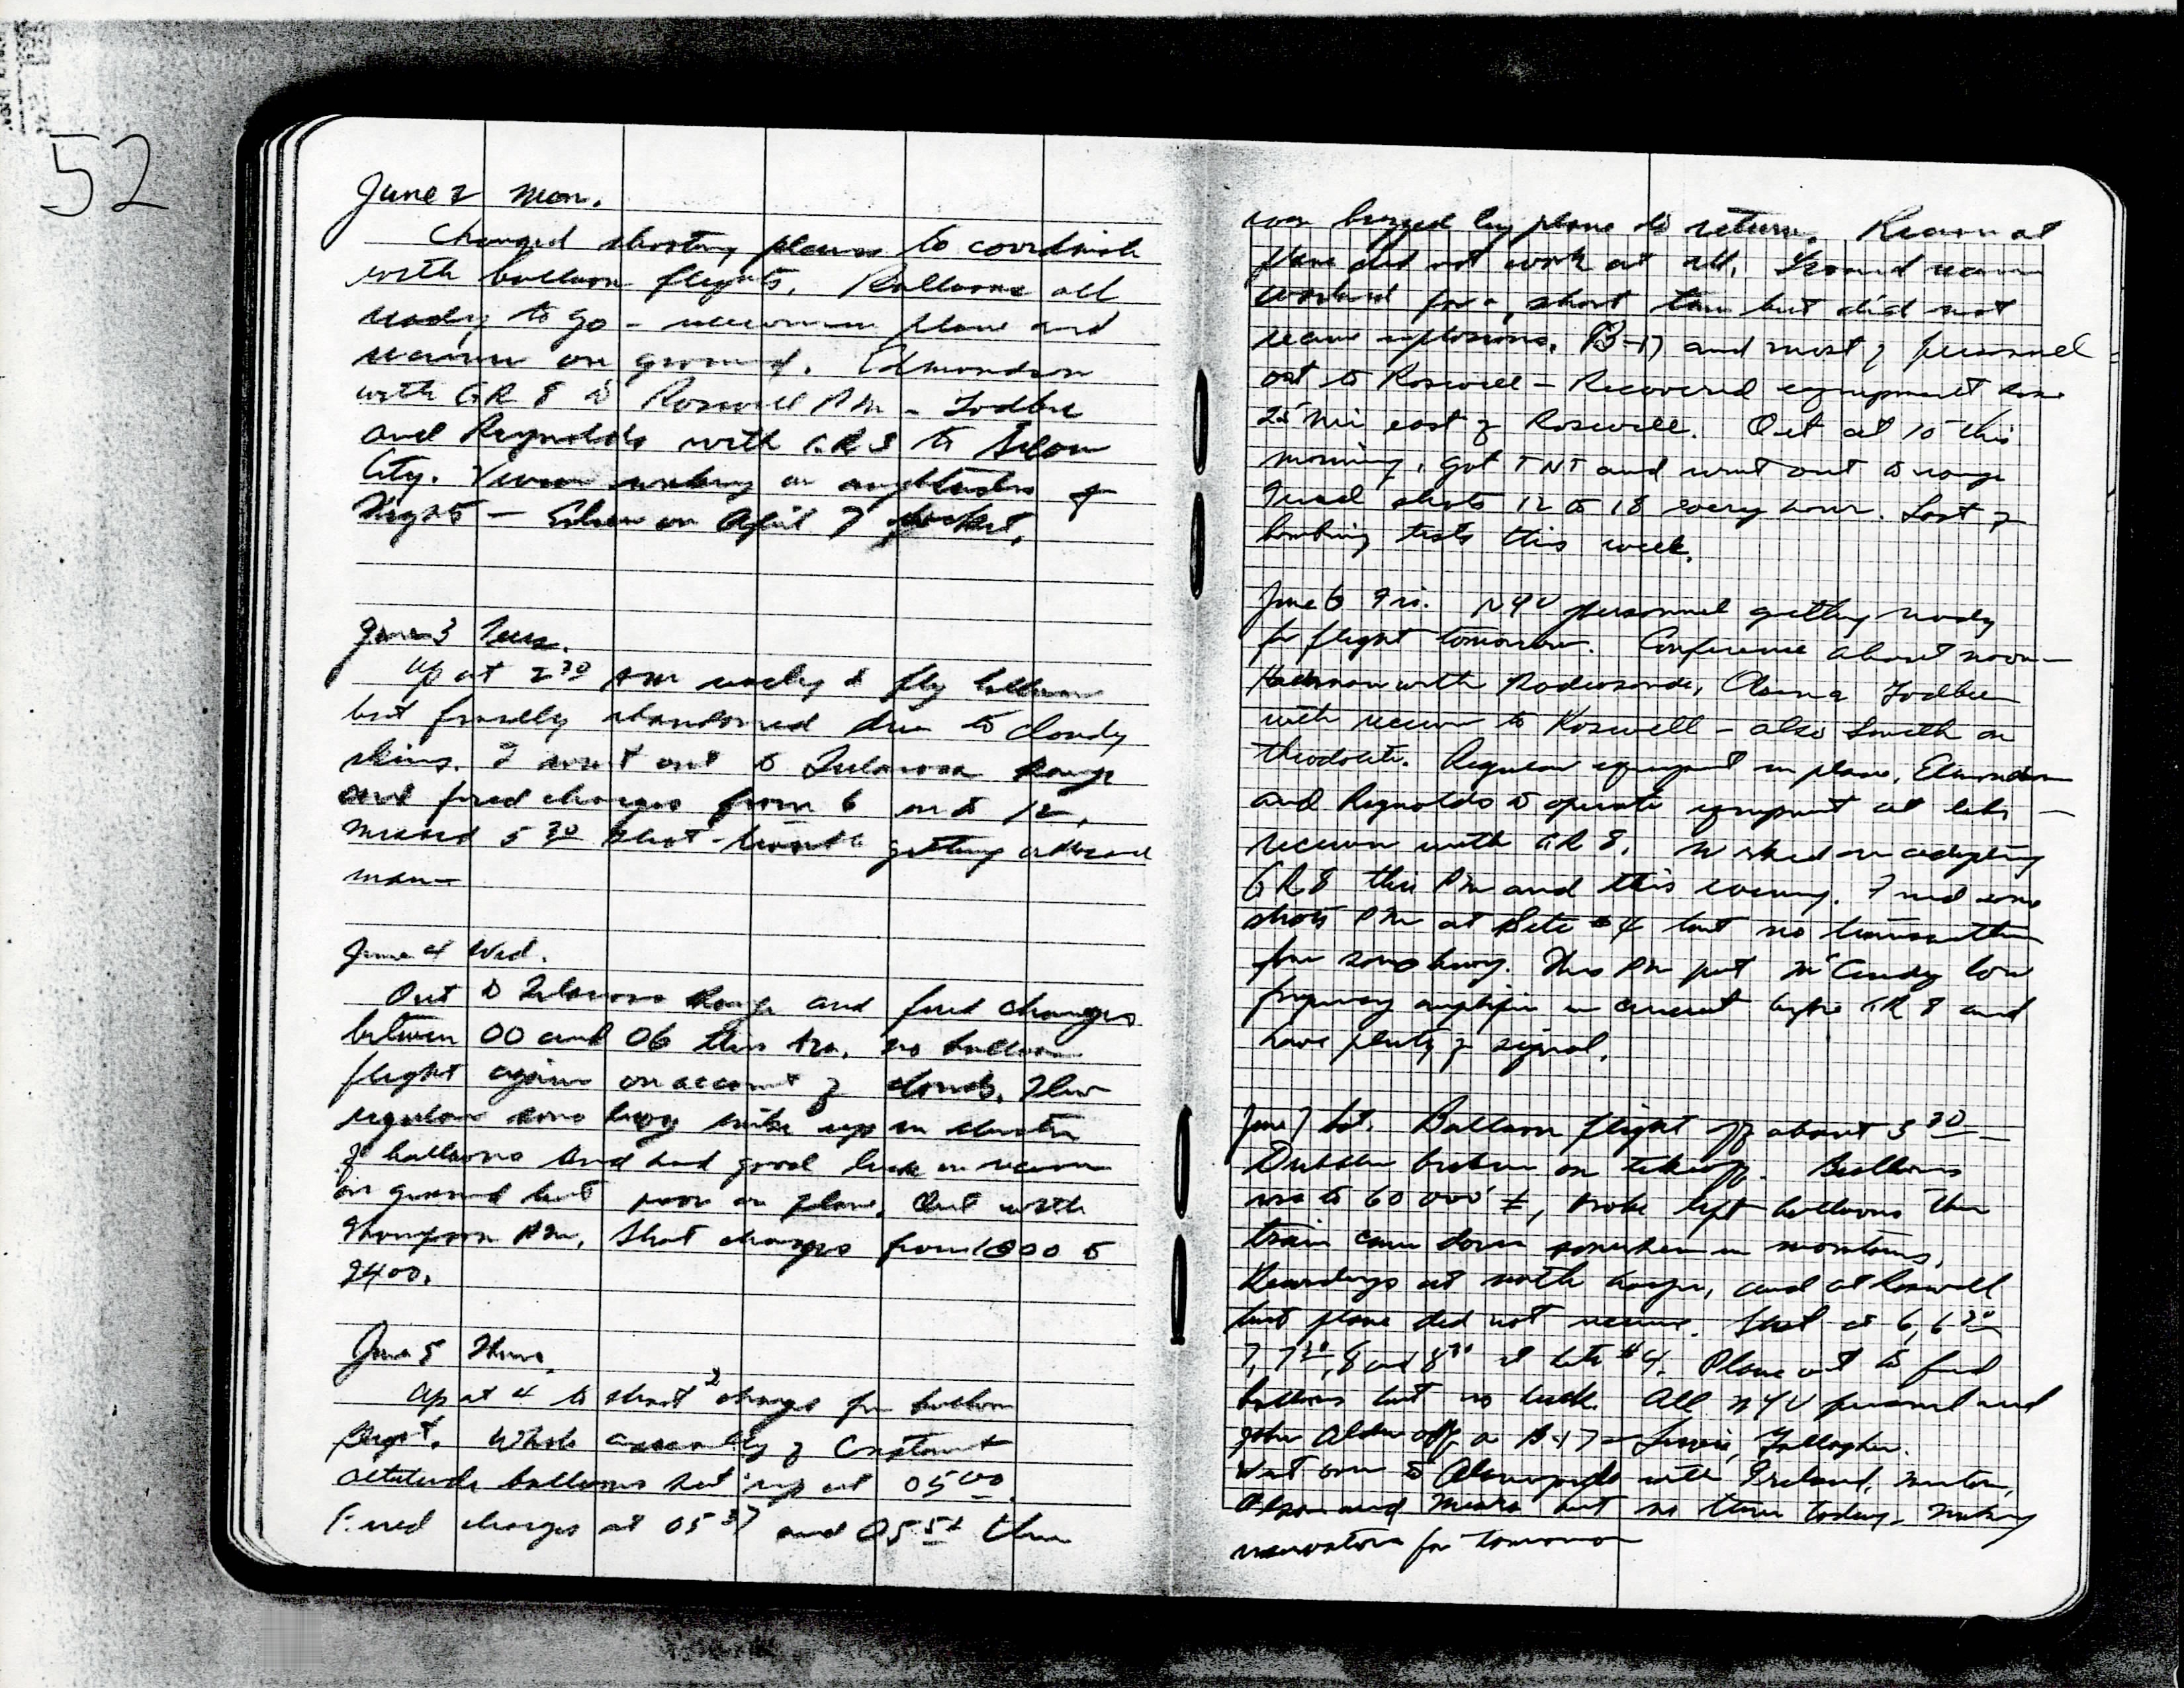 52
June 2 Mon.
Changed shooting plans to coordinate
with balloon flights. Balloons all
ready to go - receiver in plane and
receiver on ground. Edmondson
with GR 8 to Roswell PM - Godbee
and Reynolds with GR 3 to Silver
City. Vivian working on amplitudes of
nights - on April 7 rocket.
June 3 Tues.
Up at 2 30 AM ready to fly balloon
but finally abandoned due to cloudy
skies. I went out to Tularosa Range
and fired charges from 6 on to 12.
Missed 5 30 shot - trouble getting ordnance
man
June 4 Wed.
Out to Tularosa Range and fired charges
between 00 and 06 this AM. No balloon
flight again on account of clouds. Flew
regular sono buoy mike up in cluster
of balloons and had good luck on receiver
on ground but poor on plane. Out with
Thompson PM. Shot charges from 1800 to
2400.
June 5 Thurs.
Up at 4 to shoot 2 charges for balloon
flight. Whole assembly of constant
altitude balloons set up at 05 00.
Fired charges at 05 37 and 05 52 then
was buzzed by plane to return. Receiver at
plane did not work at all. Ground receiver
worked for a short time but did not
receive explosions. B-17 and most of personnel
out to Roswell - Recovered equipment some
25 mi east of Roswell. Out at 10 this
morning, got TNT and went out to range
Fired shots 12 to 18 every hour. Last of
bombing tests this week.
June 6 Fri. NYU personnel getting ready
for flight tomorrow. Conference about noon -
Hackman with Radiosonde, Godbee
with receiver to Roswell - also Smith on
theodolite. Regular equipment in plane, Edmondson
and Reynolds to operate equipment at
receiver with GR 8. Worked on adapting
GR 8 this PM and this evening. Fired some
shots PM at Site #4 but no transmitter
for sono buoy. This PM put McCurdy low
frequency amplifier in circuit before GR 8 and
have plenty of signal.
June 7 Sat. Balloon flight off about 5 30 -
broken on takeoff. Balloons
rose to 60 000' ±, broke left balloons then
train came down somewhere in mountains.
Recordings at north hangar, and at Roswell
but plane did not receive. Shot at 6, 6 30
7, 7 30, 8 and 8 30 at Site #4. Plane out to find
balloons but no luck. All NYU personnel and
John Alden off on B-17 - Gallagher.
Went over to Alamogordo with Ireland, Minton,
Olson and Mears but no train today. Making
reservations for tomorrow